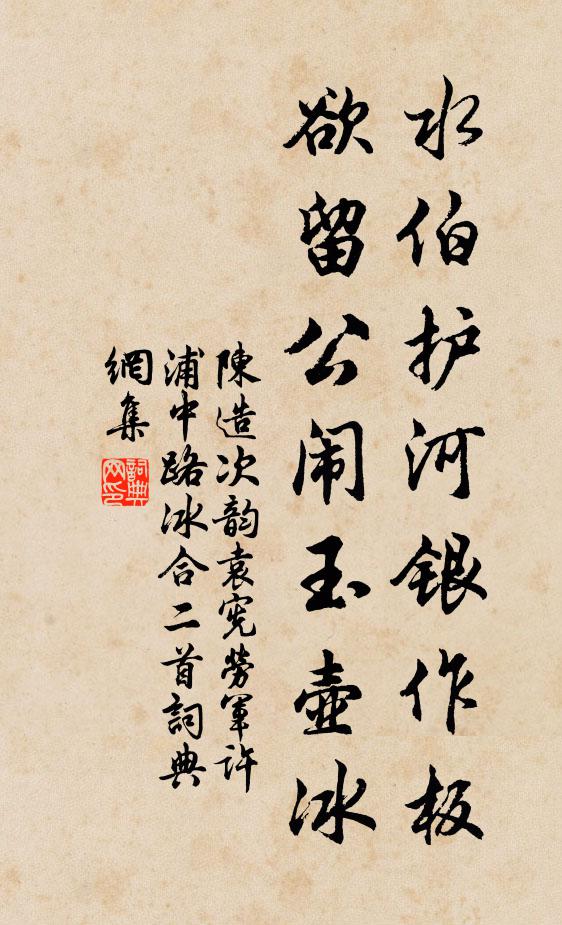 水伯护河银作板
欲留公闹玉壶冰
陳造次韵袁宪勞軍許
浦中路冰合二首詞典
網集
詞典
网印